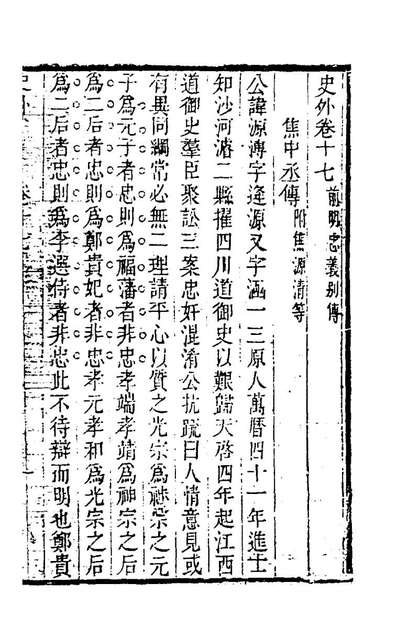 史外卷十七 前明忠義别傳
焦中丞傳 附焦源清等
公諱源溥字逢源又字涵一三原人萬曆四十一年進士
知沙河濬二縣擢四川道御史以艱歸天啓四年起江西
道御史羣臣聚訟三案忠奸混淆公抗䟽曰人情意見或
有異同綱常必無二理請平心以質之光宗爲神宗之元
子爲元子者忠則爲福藩者非忠孝端孝靖爲神宗之后
爲二后者忠則爲鄭貴妃者非忠孝元孝和爲光宗之后
爲二后者忠則爲李選侍者非忠此不待辯而明也鄭貴